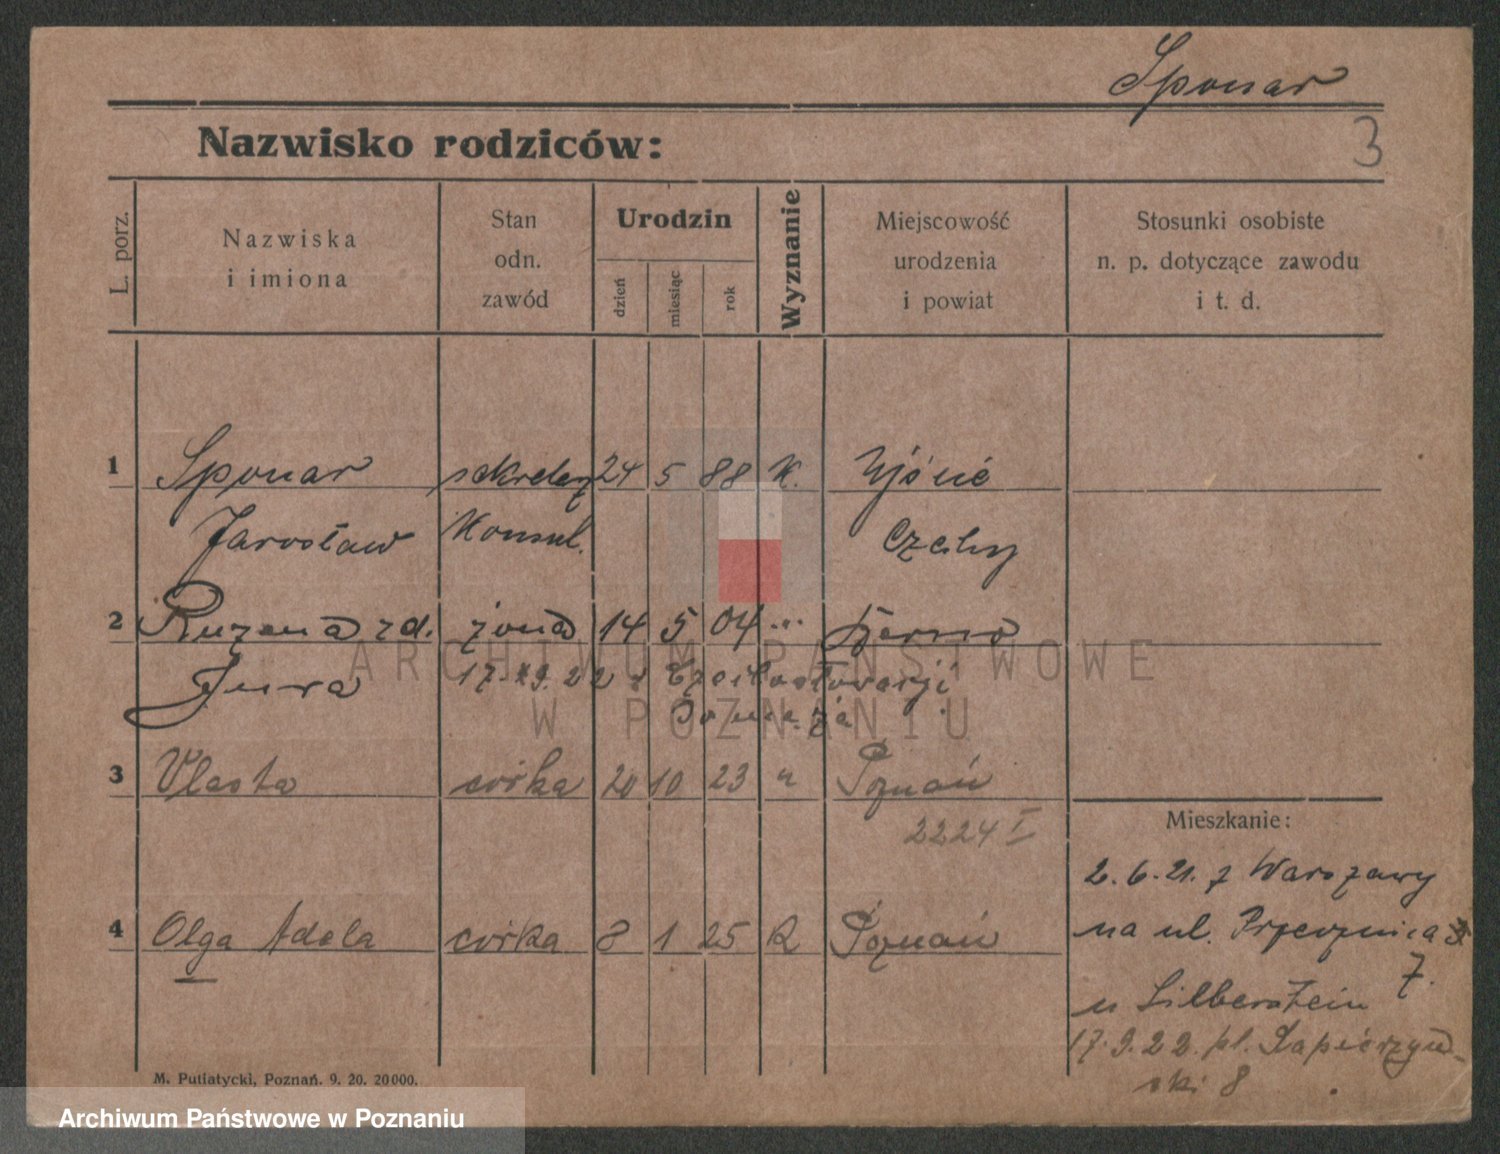 Sponar
3
Nazwisko rodziców:
L. porz.
Nazwiska
i imiona
Stan
odn.
zawód
Urodzin
dzień
miesiąc
rok
Wyznanie
Miejscowość
urodzenia
i powiat
Stosunki osobiste
n. p. dotyczące zawodu
i t. d.
1 Sponar sekretarz 24 5 88 K.
Jarosław Konsul. Czechy
2 Ruzena zd. żona 14 5 04 "
Jura 17.X9.22 z Czechosłowacji
3 Vlasta córka 20 10 23 " Poznań
2224 I
Mieszkanie:
2.6.21. z Warszawy
4 Olga Adela córka 8 1 25 K Poznań
na ul. Przecznica
7.
u Silberstein
17.9.22. pl. Sapieżyń-
ski 8
M. Putiatycki, Poznań. 9. 20. 20000.
ARCHIWUM PAŃSTWOWE
W POZNANIU
Archiwum Państwowe w Poznaniu